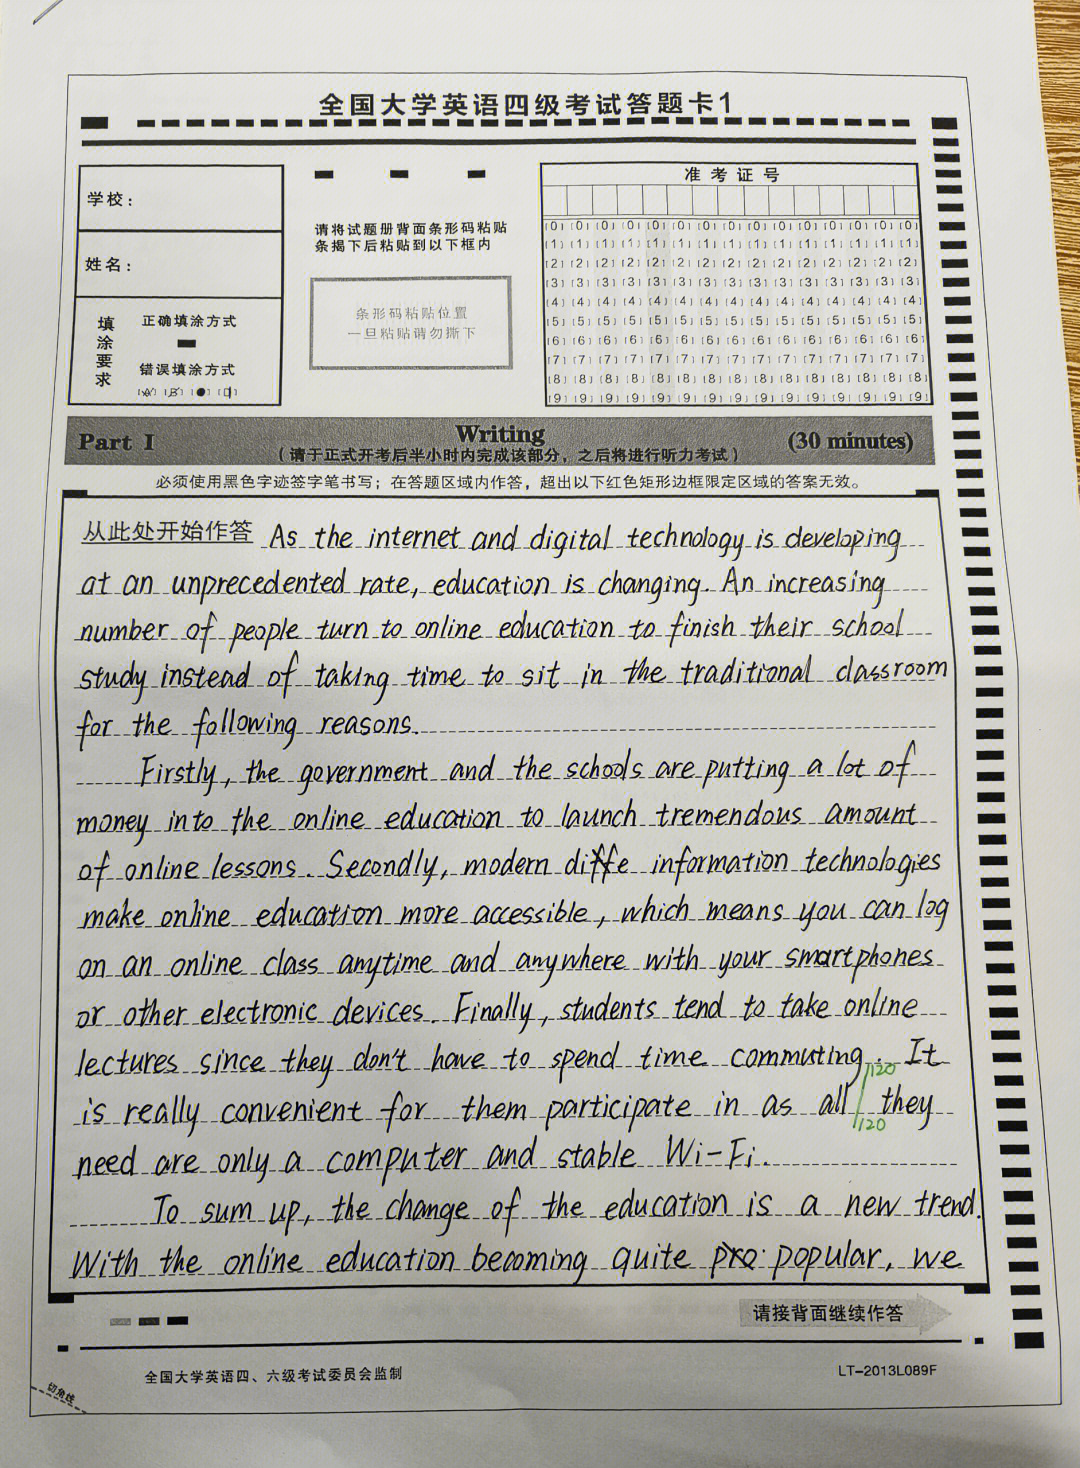 全国大学英语四级考试答题卡1
学校：
姓名：
填涂要求
正确填涂方式
错误填涂方式
请将试题册背面条形码粘贴
条揭下后粘贴到以下框内
条形码粘贴位置
一旦粘贴请勿撕下
准考证号
[0] [0] [0] [0] [0] [0] [0] [0] [0] [0] [0] [0] [0] [0] [0]
[1] [1] [1] [1] [1] [1] [1] [1] [1] [1] [1] [1] [1] [1] [1]
[2] [2] [2] [2] [2] [2] [2] [2] [2] [2] [2] [2] [2] [2] [2]
[3] [3] [3] [3] [3] [3] [3] [3] [3] [3] [3] [3] [3] [3] [3]
[4] [4] [4] [4] [4] [4] [4] [4] [4] [4] [4] [4] [4] [4] [4]
[5] [5] [5] [5] [5] [5] [5] [5] [5] [5] [5] [5] [5] [5] [5]
[6] [6] [6] [6] [6] [6] [6] [6] [6] [6] [6] [6] [6] [6] [6]
[7] [7] [7] [7] [7] [7] [7] [7] [7] [7] [7] [7] [7] [7] [7]
[8] [8] [8] [8] [8] [8] [8] [8] [8] [8] [8] [8] [8] [8] [8]
[9] [9] [9] [9] [9] [9] [9] [9] [9] [9] [9] [9] [9] [9] [9]
Part I Writing (30 minutes)
（请于正式开考后半小时内完成该部分，之后将进行听力考试）
必须使用黑色字迹签字笔书写；在答题区域内作答，超出以下红色矩形边框限定区域的答案无效。
从此处开始作答 As the internet and digital technology is developing
at an unprecedented rate, education is changing. An increasing
number of people turn to online education to finish their school
study instead of taking time to sit in the traditional classroom
for the following reasons.
Firstly, the government and the schools are putting a lot of
money into the online education to launch tremendous amount
of online lessons. Secondly, modern information technologies
make online education more accessible, which means you can log
on an online class anytime and anywhere with your smartphones
or other electronic devices. Finally, students tend to take online
lectures since they don't have to spend time commuting. It
120
is really convenient for them participate in as all they
120
need are only a computer and stable Wi-Fi.
To sum up, the change of the education is a new trend.
With the online education becoming quite popular, we
请接背面继续作答
全国大学英语四、六级考试委员会监制
LT-2013L089F
切角线